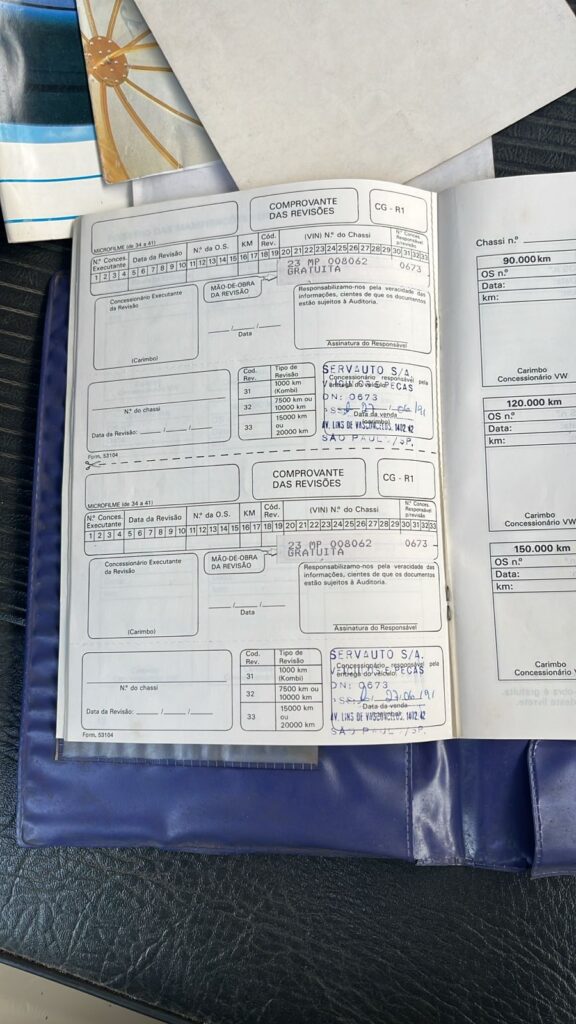 COMPROVANTE
DAS REVISÕES
CG - R1
MICROFILME (de 34 a 41)
N.º Conces. Executante
Data da Revisão
N.º da O.S.
KM
Cód. Rev.
(VIN) N.º do Chassi
N.º Conces. Responsável p/revisão
1 2 3 4 5 6 7 8 9 10 11 12 13 14 15 16 17 18 19 20 21 22 23 24 25 26 27 28 29 30 31 32 33
23 MP 008062 0673
GRATUITA
Concessionário Executante
da Revisão
(Carimbo)
MÃO-DE-OBRA
DA REVISÃO
Data
Responsabilizamo-nos pela veracidade das
informações, cientes de que os documentos
estão sujeitos à Auditoria.
Assinatura do Responsável
N.º do chassi
Data da Revisão:
Cod. Rev.
Tipo de Revisão
31 1000 km (Kombi)
32 7500 km ou 10000 km
33 15000 km ou 20000 km
Concessionário responsável pela
entrega do veículo
Data da venda
(carimbo)
SERVAUTO S/A.
VEICULOS E PEÇAS
DN: 0673
27 06/91
AV. LINS DE VASCONCELOS, 1412/42
SÃO PAULO/SP.
Form. 53104
COMPROVANTE
DAS REVISÕES
CG - R1
MICROFILME (de 34 a 41)
N.º Conces. Executante
Data da Revisão
N.º da O.S.
KM
Cód. Rev.
(VIN) N.º do Chassi
N.º Conces. Responsável p/revisão
1 2 3 4 5 6 7 8 9 10 11 12 13 14 15 16 17 18 19 20 21 22 23 24 25 26 27 28 29 30 31 32 33
23 MP 008062 0673
GRATUITA
Concessionário Executante
da Revisão
(Carimbo)
MÃO-DE-OBRA
DA REVISÃO
Data
Responsabilizamo-nos pela veracidade das
informações, cientes de que os documentos
estão sujeitos à Auditoria.
Assinatura do Responsável
N.º do chassi
Data da Revisão:
Cod. Rev.
Tipo de Revisão
31 1000 km (Kombi)
32 7500 km ou 10000 km
33 15000 km ou 20000 km
Concessionário responsável pela
entrega do veículo
Data da venda
SERVAUTO S/A.
VEICULOS E PEÇAS
DN: 0673
27/06/91
AV. LINS DE VASCONCELOS, 1412/42
SÃO PAULO/SP.
Form. 53104
Chassi n.º
90.000 km
OS n.º
Data:
km:
Carimbo
Concessionário VW
120.000 km
OS n.º
Data:
km:
Carimbo
Concessionário VW
150.000 km
OS n.º
Data:
km:
Carimbo
Concessionário